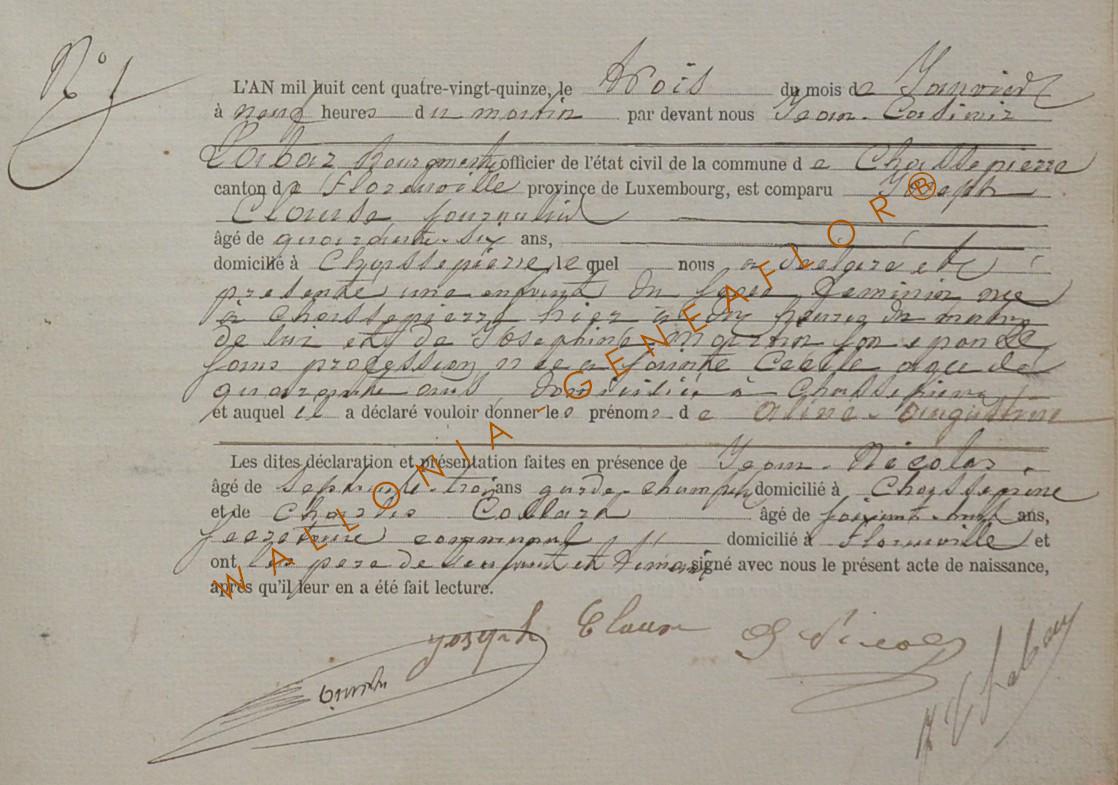 N° 1
L'AN mil huit cent quatre-vingt-quinze, le trois du mois de Janvier
à neuf heures du matin par devant nous Jean-Casimir
bourgmestre officier de l'état civil de la commune de Chassepierre
canton de Florenville province de Luxembourg, est comparu Joseph
Clause journalier
âgé de quarante-six ans,
domicilié à Chassepierre, lequel nous a déclaré et
présenté une enfant du sexe féminin née
à Chassepierre hier à heures du matin
de lui et de Joséphine son épouse
sans profession née à Sainte Cécile agée de
quarante ans domiciliée à Chassepierre
et auquel il a déclaré vouloir donner les prénoms de Aline-Augustine
Les dites déclaration et présentation faites en présence de Jean-Nicolas
âgé de septante-trois ans garde-champêtre domicilié à Chassepierre
et de Charles Collard âgé de ans,
secrétaire communal domicilié à Florenville et
ont le père de l'enfant et témoins signé avec nous le présent acte de naissance,
après qu'il leur en a été fait lecture.
Joseph Claus J Nicolas
WALLONIA-GENEAFLOR®